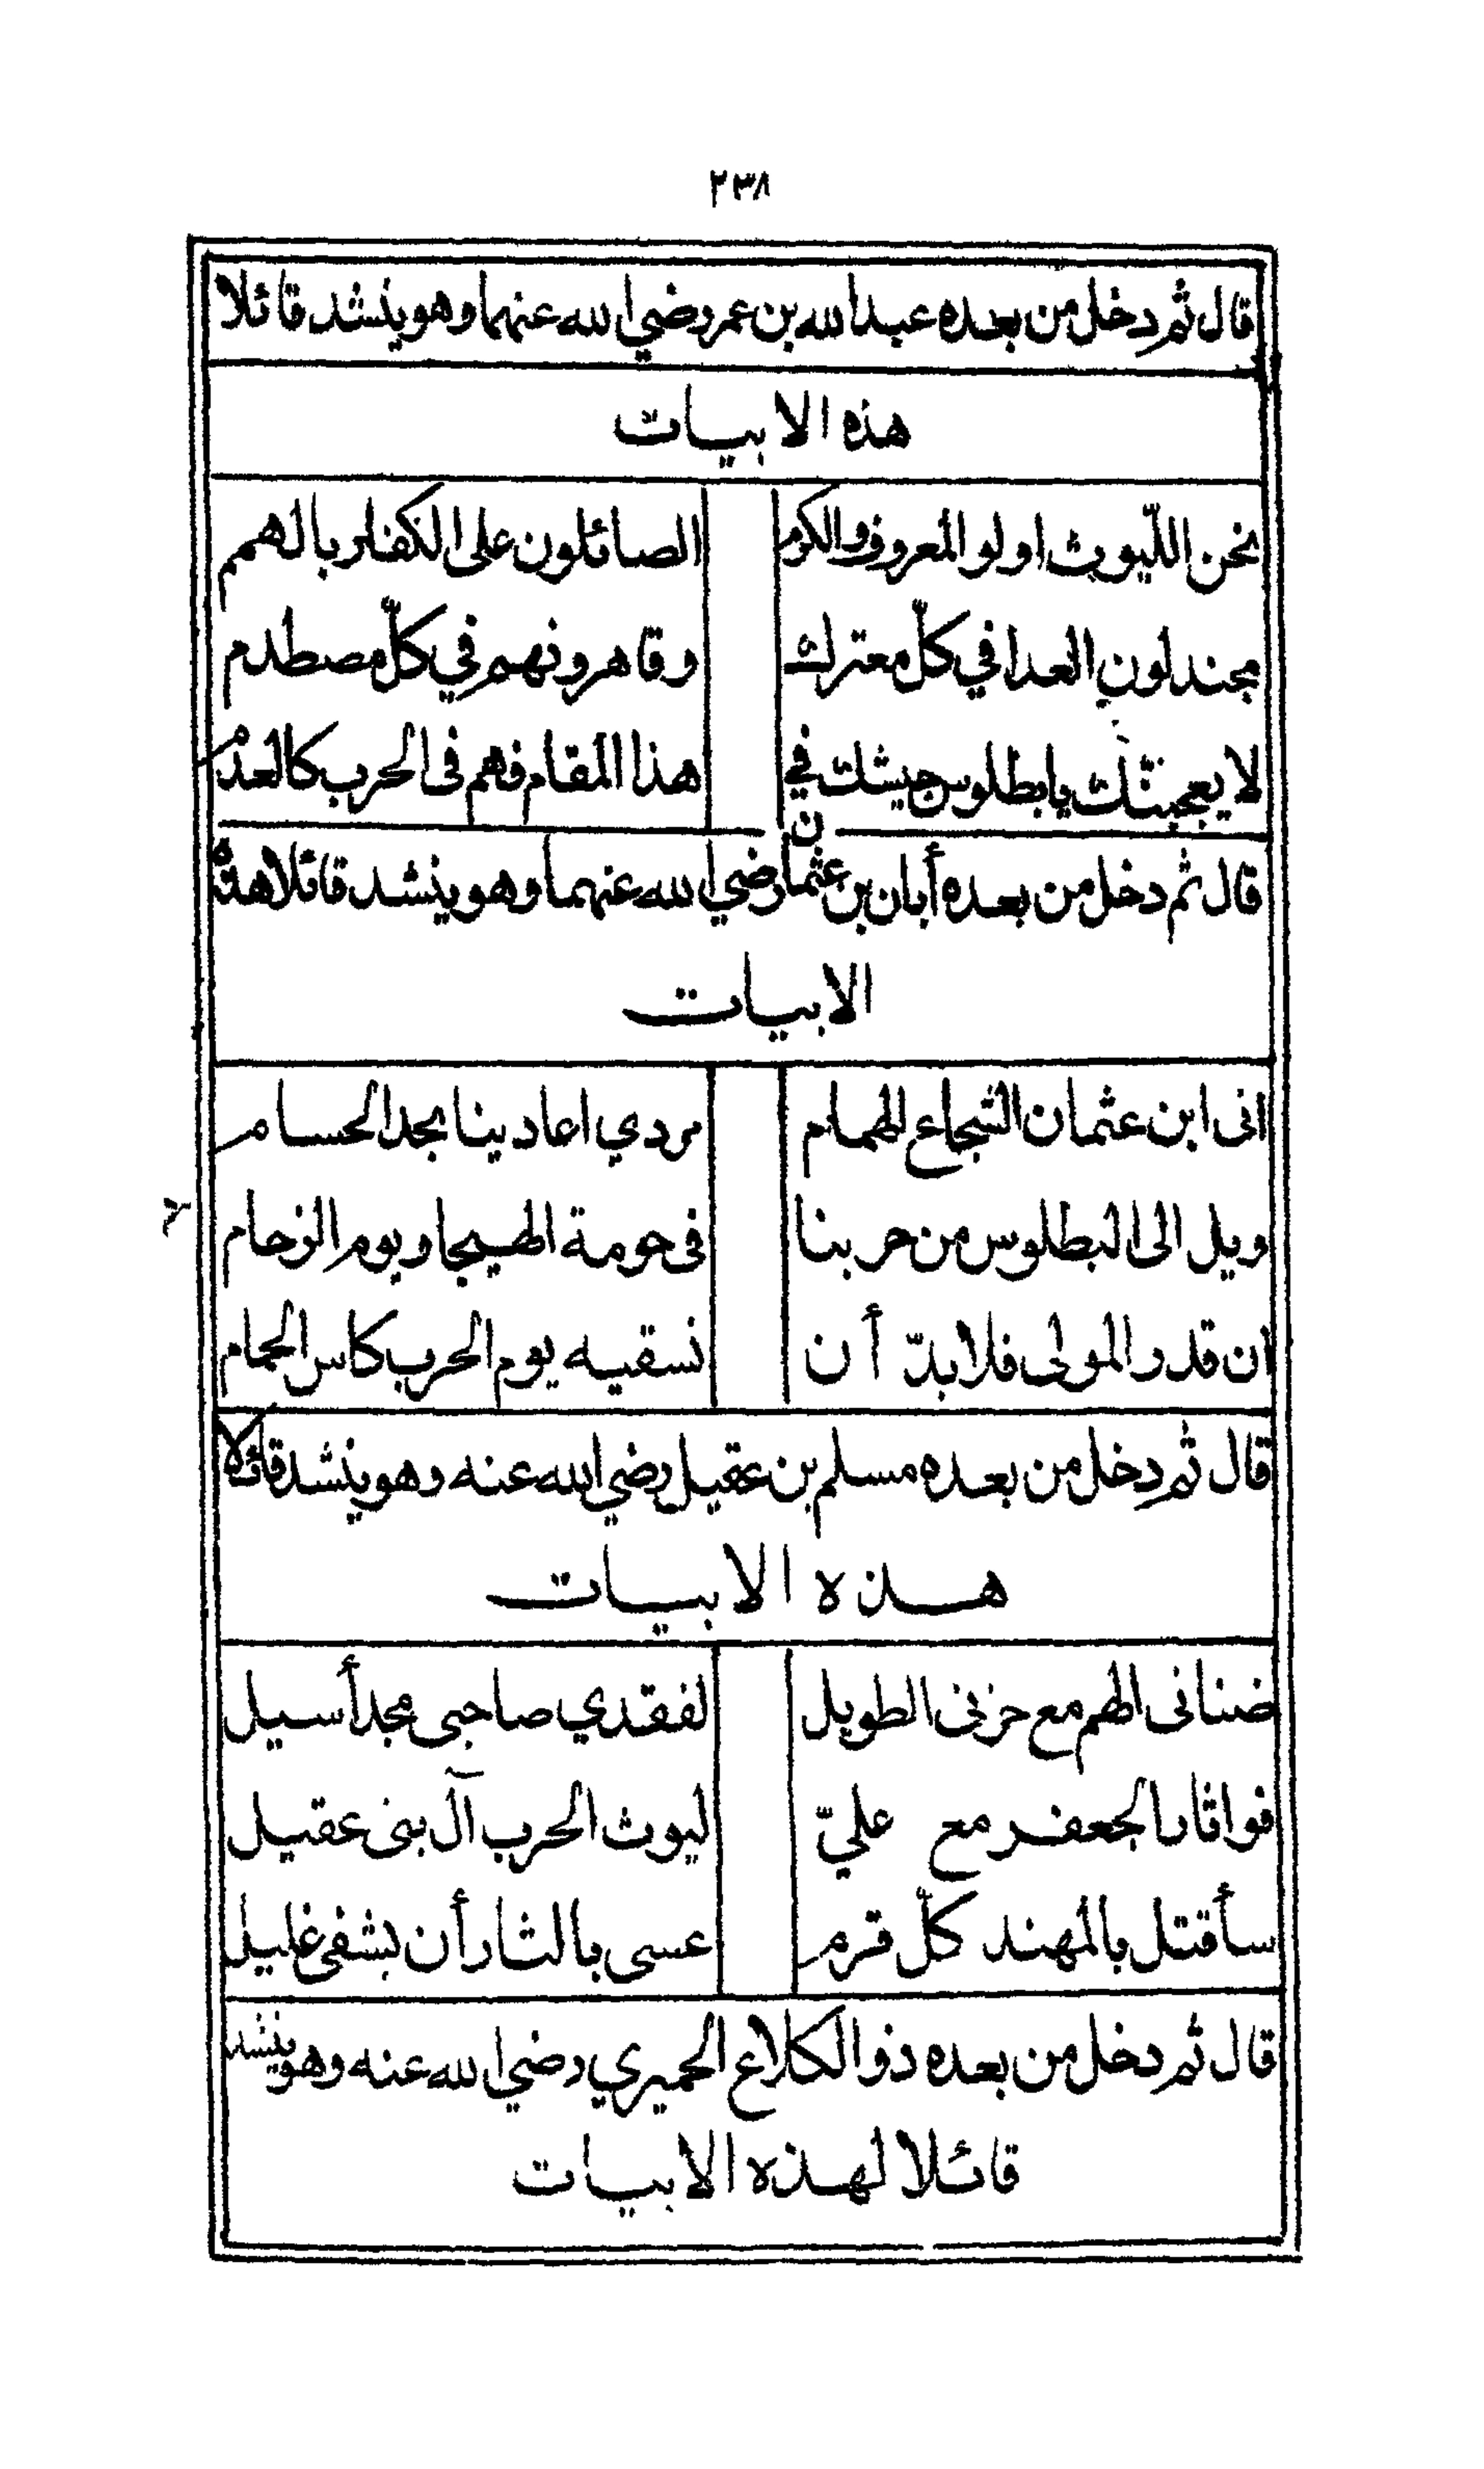 ٢٣٨
قال ثم دخل من بعده عبدالله بن عمر رضي الله عنهما وهو ينشد قائلا
هذه الابيات
نحن اللّيوث اولو المعروف والكرم الصائلون على الكفار بالهمم
مجندلون العدا في كلّ معترك وقاهرونهم في كلّ مصطدم
لا يعجبنّك يا بطلوس جيشك في هذا المقام فهم فى الحرب كالعدم
قال ثم دخل من بعده أبان بن عثمان رضي الله عنهما وهو ينشد قائلا هذه
الابيات
انى ابن عثمان الشجاع الهمام مردي اعادينا بحد الحسام
ويل الى البطلوس من حربنا فى حومة الهيجا ويوم الزحام
ان قدر المولى فلا بدّ أن نسقيه يوم الحرب كاس الحمام
قال ثم دخل من بعده مسلم بن عقيل رضي الله عنه وهو ينشد قائلا
هذه الابيات
ضنانى الهم مع حزنى الطويل لفقدي صاحبى مجد أسيل
فواثارا لجعفر مع عليّ ليوث الحرب آل بنى عقيل
سأقتل بالمهند كلّ قرم عسى بالثار أن يشفى غليل
قال ثم دخل من بعده ذو الكلاع الحميري رضي الله عنه وهو ينشد
قائلا لهذه الابيات